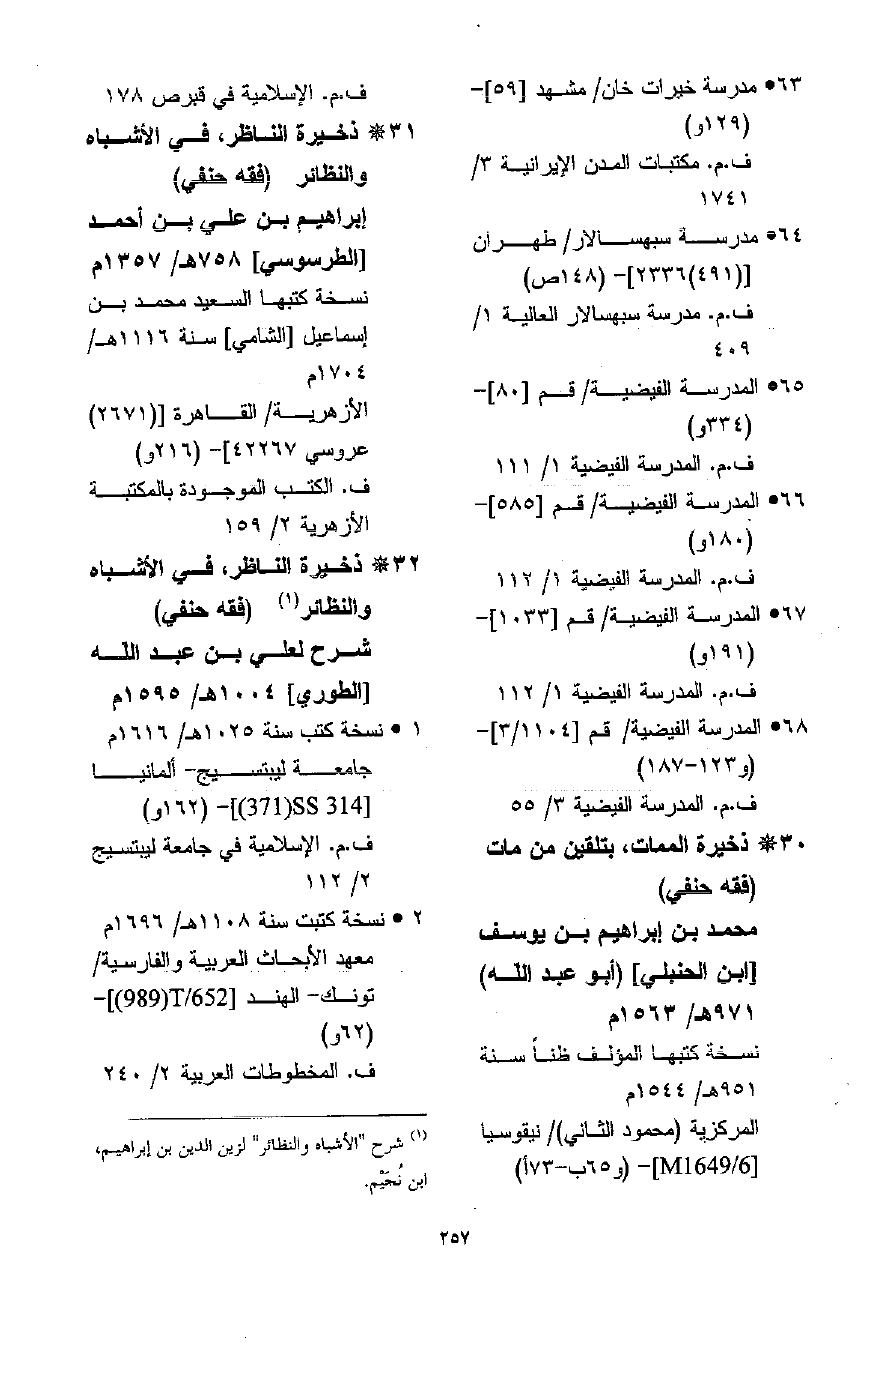 ٦٣• مدرسة خيرات خان/ مشهد [٥٩]-
(١٢٩و)
ف.م. مكتبات المدن الإيرانية ٣/
١٧٤١
٦٤• مدرسة سبهسالار/ طهران
[(٤٩١)٢٣٣٦]- (١٤٨ص)
ف.م. مدرسة سبهسالار العالية ١/
٤٠٩
٦٥• المدرسة الفيضية/ قم [٨٠]-
(٣٣٤و)
ف.م. المدرسة الفيضية ١/ ١١١
٦٦• المدرسة الفيضية/ قم [٥٨٥]-
(١٨٠و)
ف.م. المدرسة الفيضية ١/ ١١٢
٦٧• المدرسة الفيضية/ قم [١٠٣٣]-
(١٩١و)
ف.م. المدرسة الفيضية ١/ ١١٢
٦٨• المدرسة الفيضية/ قم [٣/١١٠٤]-
(و١٢٣-١٨٧)
ف.م. المدرسة الفيضية ٣/ ٥٥
٣٠* ذخيرة الممات، بتلقين من مات
(فقه حنفي)
محمد بن إبراهيم بن يوسف
[ابن الحنبلي] (أبو عبد الله)
٩٧١هـ/ ١٥٦٣م
نسخة كتبها المؤلف ظناً سنة
٩٥١هـ/ ١٥٤٤م
المركزية (محمود الثاني)/ نيقوسيا
[M1649/6]- (و٦٥ب-٧٣أ)
ف.م. الإسلامية في قبرص ١٧٨
٣١* ذخيرة الناظر، في الأشباه
والنظائر (فقه حنفي)
إبراهيم بن علي بن أحمد
[الطرسوسي] ٧٥٨هـ/ ١٣٥٧م
نسخة كتبها السعيد محمد بن
إسماعيل [الشامي] سنة ١١١٦هـ/
١٧٠٤م
الأزهرية/ القاهرة [(٢٦٧١)
عروسي ٤٢٢٦٧]- (٢١٦و)
ف. الكتب الموجودة بالمكتبة
الأزهرية ٢/ ١٥٩
٣٢* ذخيرة الناظر، في الأشباه
والنظائر(١) (فقه حنفي)
شرح لعلي بن عبد الله
[الطوري] ١٠٠٤هـ/ ١٥٩٥م
١ • نسخة كتب سنة ١٠٢٥هـ/ ١٦١٦م
جامعة ليبتسيج- ألمانيا
[(371)SS 314]- (١٦٢و)
ف.م. الإسلامية في جامعة ليبتسيج
٢/ ١١٢
٢ • نسخة كتبت سنة ١١٠٨هـ/ ١٦٩٦م
معهد الأبحاث العربية والفارسية/
تونك- الهند [(989)T/652]-
(٦٢و)
ف. المخطوطات العربية ٢/ ٢٤٠
(١) شرح "الأشباه والنظائر" لزين الدين بن إبراهيم،
ابن نُجَيْم.
٢٥٧